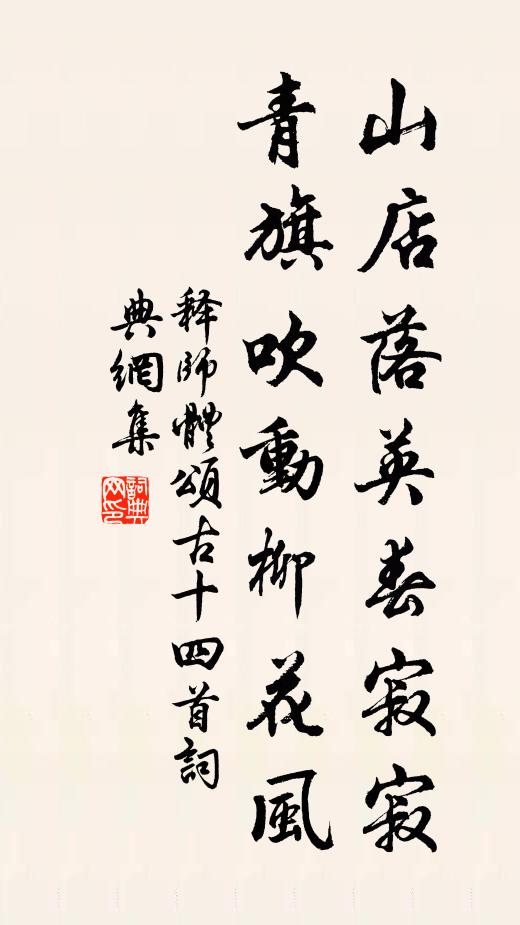 山店落英春寂寂
青旗吹動柳花風
释師體頌古十四首詞
典網集
詞典网印